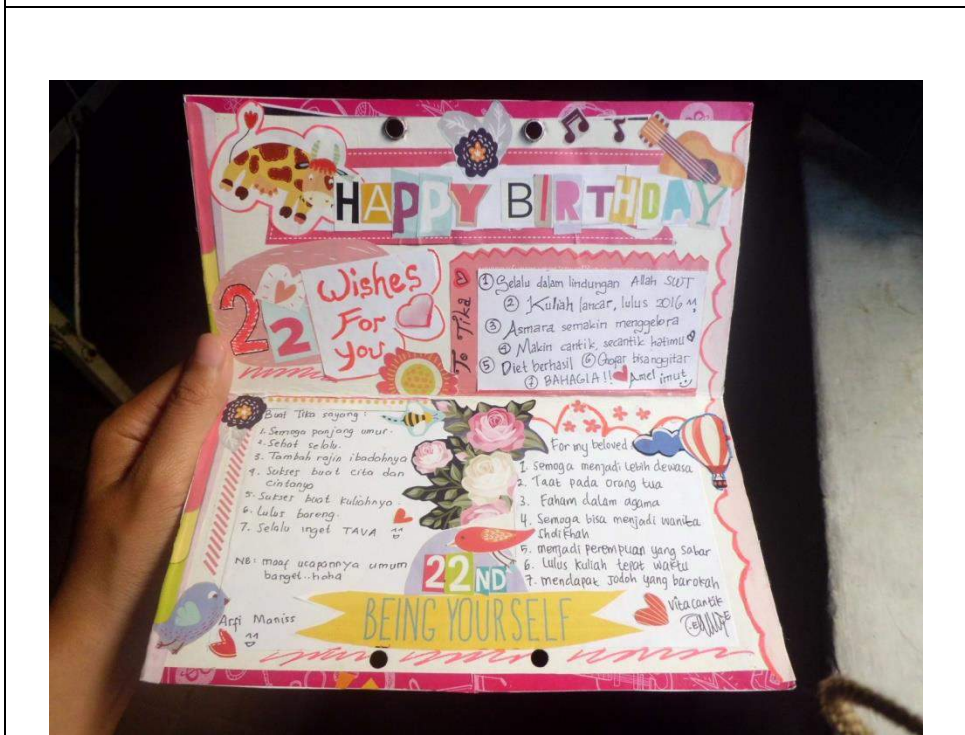 HAPPY BIRTHDAY
22
Wishes
For
you
To Tika
① Selalu dalam lindungan Allah SWT
② Kuliah lancar, lulus 2016 ^^
③ Asmara semakin menggelora
④ Makin cantik, secantik hatimu
⑤ Diet berhasil ⑥ bisanggitar
⑦ BAHAGIA!! Amel imut
Buat Tika sayang :
1. Semoga panjang umur.
2. Sehat selalu.
3. Tambah rajin ibadahnya
4. Sukses buat cita dan
cintanya
5. Sukses buat kuliahnya.
6. Lulus bareng.
7. Selalu inget TAVA ^^
NB: maaf ucapannya umum
banget..haha
Arfi Maniss
^^
For my beloved
1. Semoga menjadi lebih dewasa
2. Taat pada orang tua
3. Faham dalam agama
4. Semoga bisa menjadi wanita
Sholikhah
5. menjadi perempuan yang sabar
6. Lulus kuliah tepat waktu
7. mendapat jodoh yang barokah
Vita cantik
22ND
BEING YOURSELF